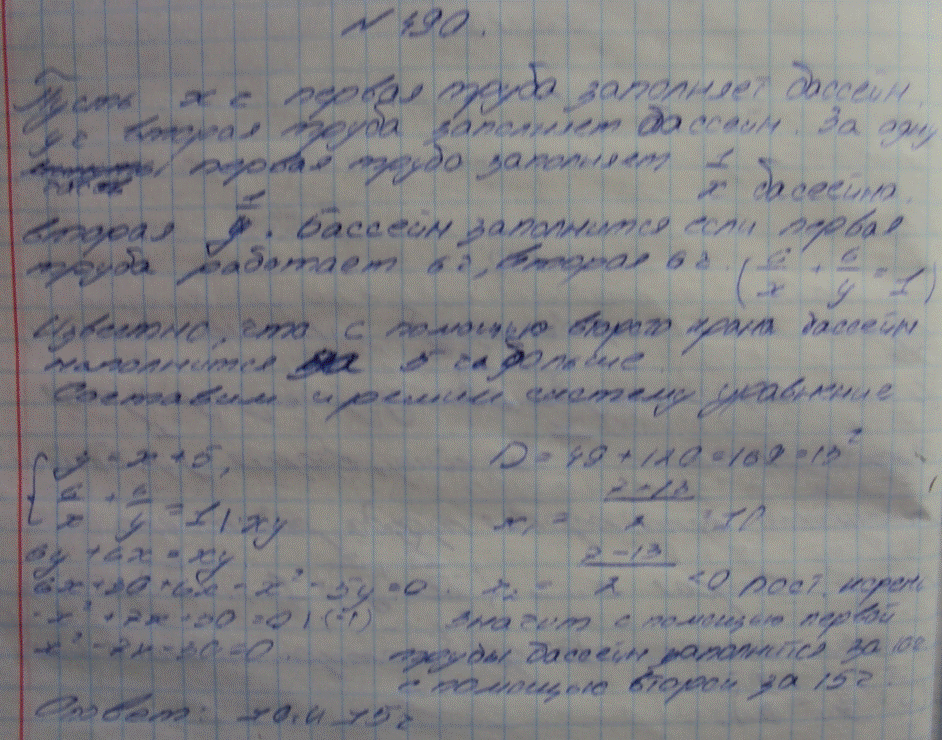 № 490.
Пусть x ч первая труба заполняет бассейн,
y ч вторая труба заполняет бассейн. За одну
первая труба заполняет 1/x бассейна,
вторая 1/y. Бассейн заполнится если первая
труба работает 6 ч, вторая 6 ч. (6/x + 6/y = 1)
Известно, что с помощью второго крана бассейн
наполнится на 5 ч больше
Составим и решим систему уравнение
{ y = x + 5,
6/x + 6/y = 1 | · xy
6y + 6x = xy
6x + 30 + 6x - x² - 5y = 0
-x² + 7x + 30 = 0 | · (-1)
x² - 7x - 30 = 0.
D = 49 + 120 = 169 = 13²
x₁ = 7+13/2 = 10
x₂ = 7-13/2 < 0 пост. корень
Значит с помощью первой
трубы бассейн заполнится за 10ч
с помощью второй за 15ч.
Ответ: 10 и 15ч